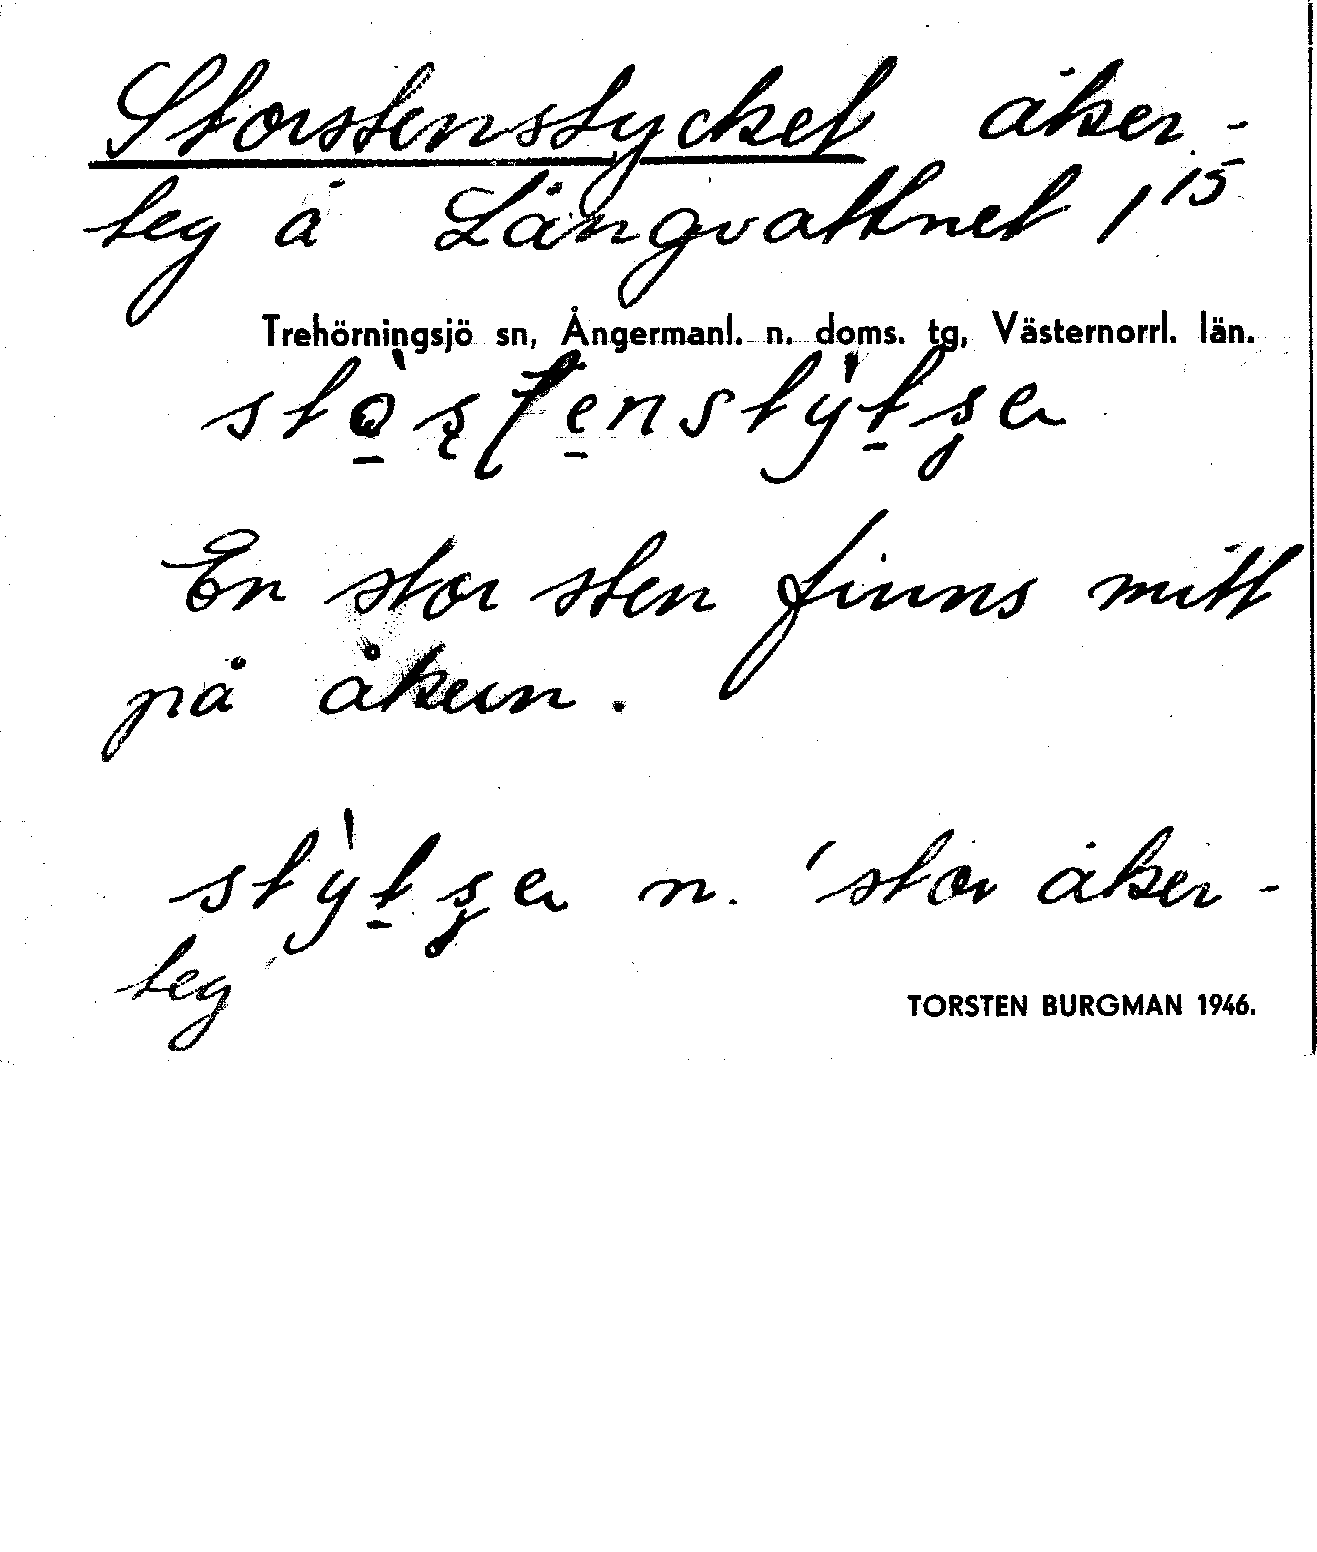 Storstenstycket åker-
teg å Långvattnet 1 15
Trehörningsjö sn, Ångermanl. n. doms. tg, Västernorrl. län.
En stor sten finns mitt
på åkern.
n. 'stor åker-
teg'
TORSTEN BURGMAN 1946.